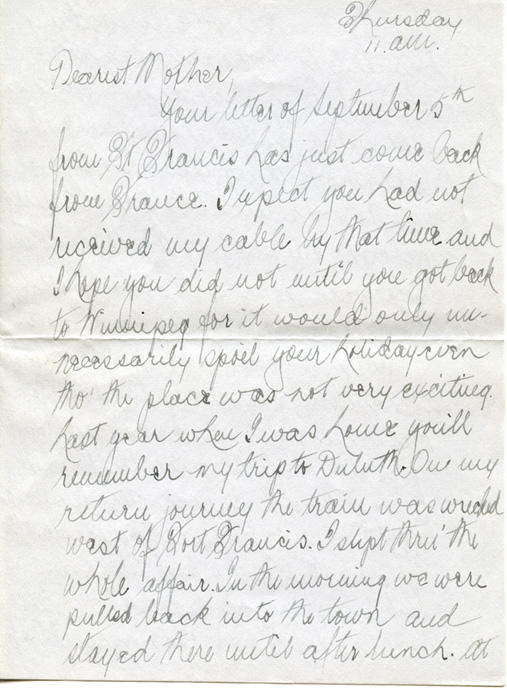 Thursday
11. a.m.
Dearest Mother,
Your letter of September 5th
from Ft Francis has just come back
from France. I expect you had not
received my cable by that time and
I hope you did not until you got back
to Winnipeg for it would only un-
necessarily spoil your holiday even
tho' the place was not very exciting.
Last year when I was home you'll
remember my trip to Duluth. On my
return journey the train was wrecked
west of Fort Francis. I slept thru' the
whole affair. In the morning we were
pulled back into the town and
stayed there until after lunch. At